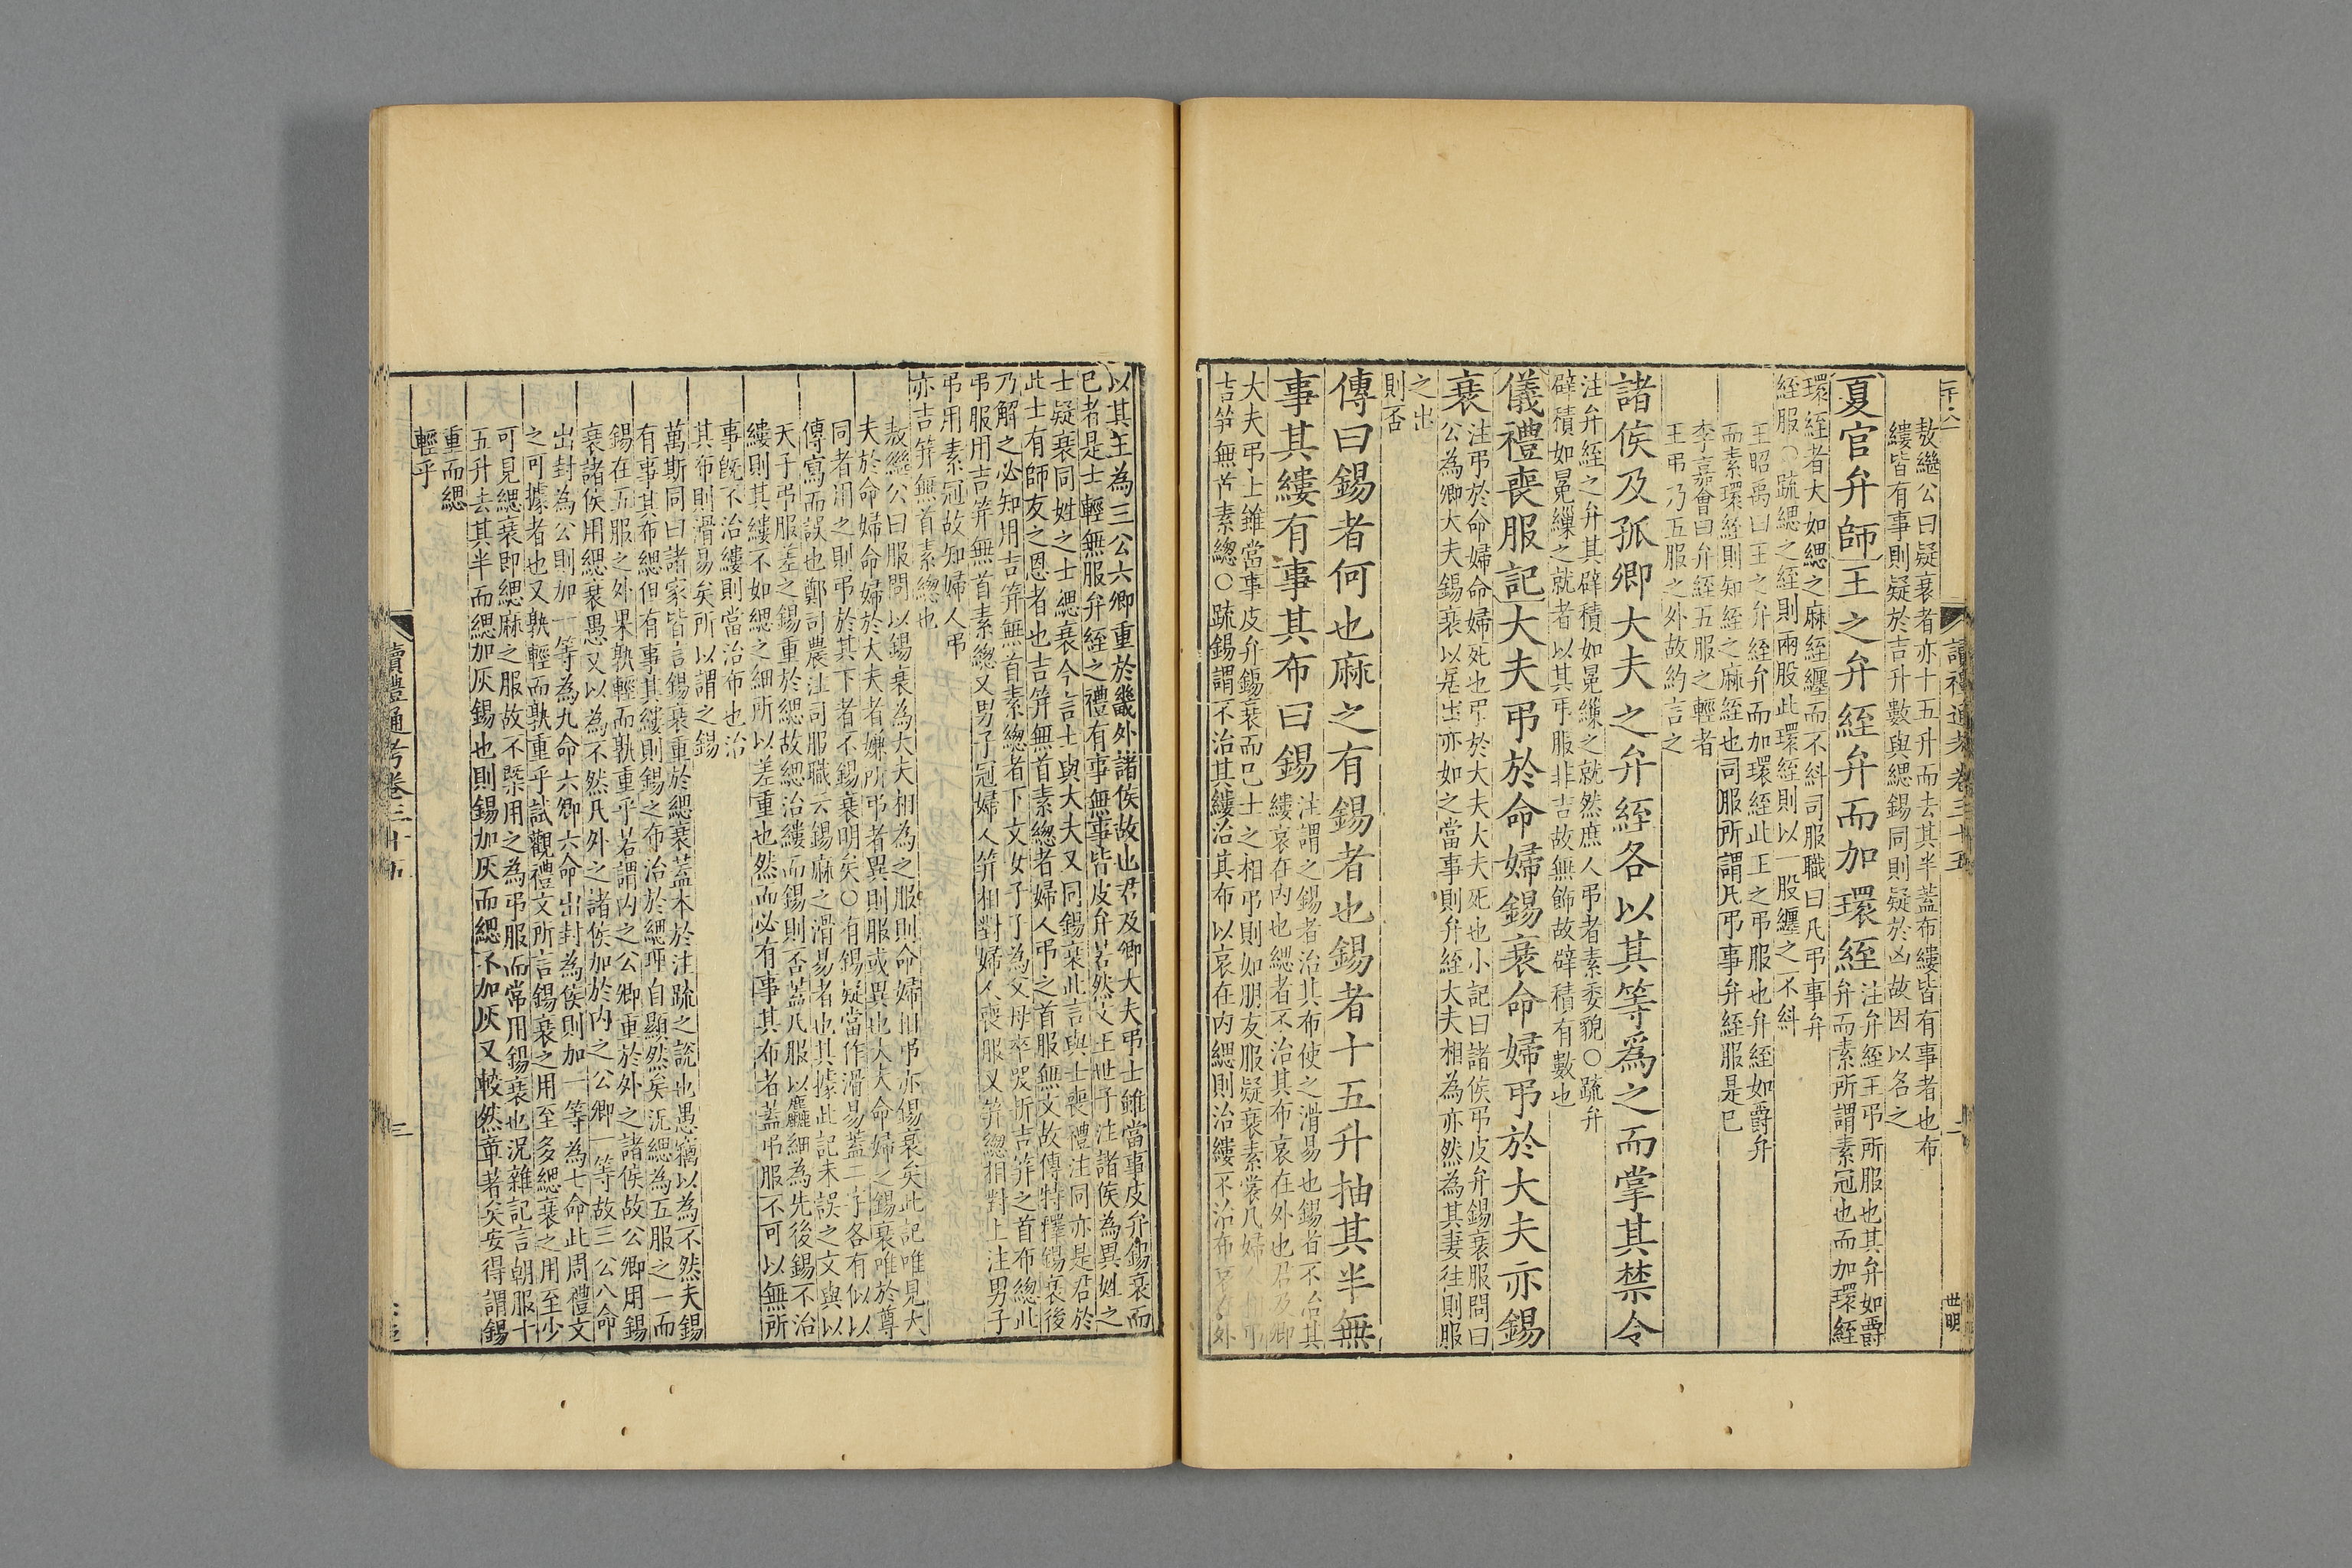 讀禮通考卷三十五
二
世明
敖繼公曰疑衰者亦十五升而去其半蓋布縷皆有事者也布
縷皆有事則疑於吉升數與緦錫同則疑於凶故因以名之
夏官弁師王之弁絰弁而加環絰
注弁絰王弔所服也其弁如爵
弁而素所謂素冠也而加環絰
環絰者大如緦之麻絰纏而不糾司服職曰凡弔事弁
絰服○疏緦之絰則兩股此環絰則以一股纏之不糾
王昭禹曰王之弁絰弁而加環絰此王之弔服也弁絰如爵弁
而素環絰則知絰之麻絰也司服所謂凡弔事弁絰服是已
李嘉會曰弁絰五服之輕者
王弔乃五服之外故約言之
諸侯及孤卿大夫之弁絰各以其等爲之而掌其禁令
注弁絰之弁其辟積如冕繅之就然庶人弔者素委貌○疏弁
辟積如冕繅之就者以其弔服非吉故無飾故辟積有數也
儀禮喪服記大夫弔於命婦錫衰命婦弔於大夫亦錫
衰
注弔於命婦命婦死也弔於大夫大夫死也小記曰諸侯弔皮弁錫衰服問曰
公為卿大夫錫衰以居出亦如之當事則弁絰大夫相為亦然為其妻往則服
之出
則否
傳曰錫者何也麻之有錫者也錫者十五升抽其半無
事其縷有事其布曰錫
注謂之錫者治其布使之滑易也錫者不治其
縷哀在內也緦者不治其布哀在外也君及卿
大夫弔士雖當事皮弁錫衰而已士之相弔則如朋友服疑衰素裳凡婦
吉笄無首素緦○疏錫謂不治其縷治其布以哀在內緦則治縷不治布
以其王為三公六卿重於畿外諸侯故也君及卿大夫弔士雖當事皮弁錫衰而
已者是士輕無服弁絰之禮有事無事皆皮弁若然文王世子注諸侯為異姓之
士疑衰同姓之士緦衰今言士與大夫又同錫衰此言與士喪禮注同亦是君於
此士有師友之恩者也吉笄無首素緦者婦人弔之首服無文故傳特釋錫衰後
乃解之必知用吉笄無首素緦者下文女子子為父母卒哭折吉笄之首布緦此
弔服用吉笄無首素緦又男子冠婦人笄相對婦人喪服又笄緦相對上注男子
弔用素冠故知婦人弔
亦吉笄無首素緦也
敖繼公曰服問以錫衰為大夫相為之服則命婦相弔亦錫衰矣此記唯見大
夫於命婦命婦於大夫者嫌所弔者異則服或異也大夫命婦之錫衰唯於尊
同者用之則弔於其下者不錫衰明矣○有錫疑當作滑易蓋二字各有似以
傳寫而誤也鄭司農注司服職云錫麻之滑易者也其據此記未誤之文與以
天子弔服差之錫重於緦故緦治縷而錫則否蓋凡服以麤細為先後錫不治
縷則其縷不如緦之細所以差重也然而必有事其布者蓋弔服不可以無所
事旣不治縷則當治布也治
其布則滑易矣所以謂之錫
萬斯同曰諸家皆言錫衰重於緦衰蓋本於注疏之說也愚竊以為不然夫錫
有事其布緦但有事其縷則錫之布治於緦理自顯然矣況緦為五服之一而
錫在五服之外果孰輕而孰重乎若謂內之公卿重於外之諸侯故公卿用錫
衰諸侯用緦衰愚又以為不然凡外之諸侯加於內之公卿一等故三公八命
出封為公則加一等為九命六卿六命出封為侯則加一等為七命此周禮文
之可據者也又孰輕而孰重乎試觀禮文所言錫衰之用至多緦衰之用至少
可見緦衰即緦麻之服故不槩用之為弔服而常用錫衰也況雜記言朝服十
五升去其半而緦加灰錫也則錫加灰而緦不加灰又較然章著矣安得謂錫
重而緦
輕乎
讀禮通考卷三十五
三